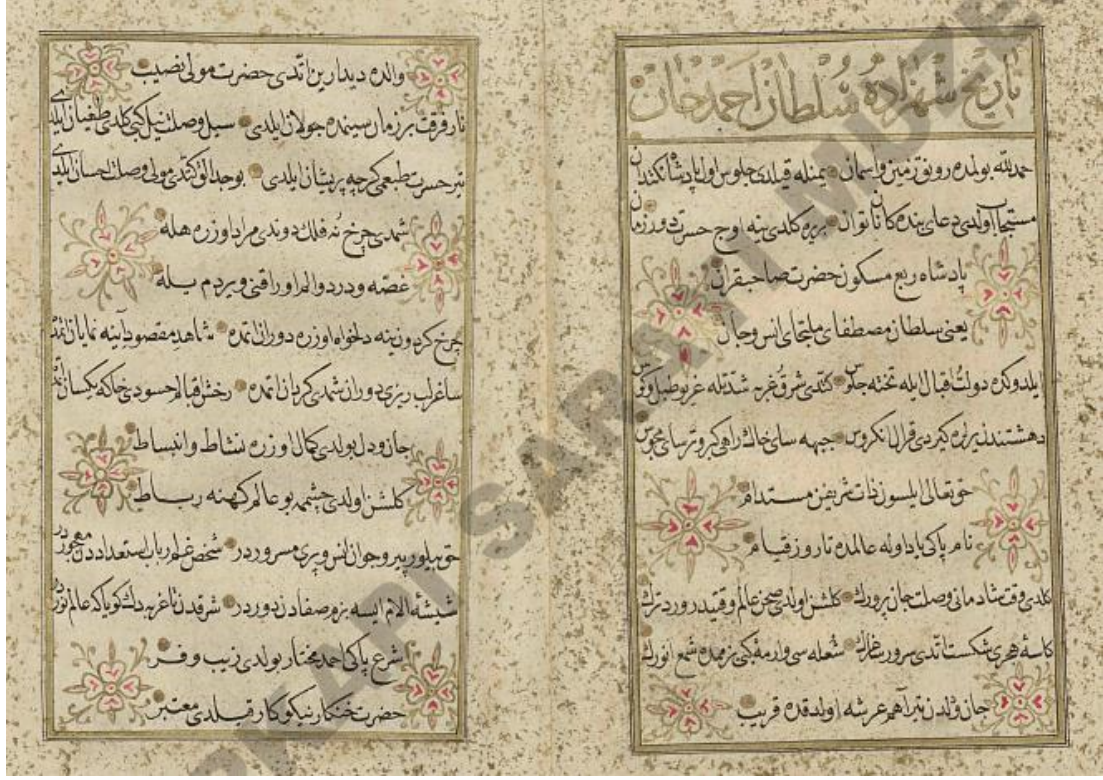 تاریخ شهزاده سلطان احمد خان
حمد لله بولدی رونق زمین و آسمان یمنله قیلدی جلوس اول پادشاه
مستجاب اولدی دعای بنده کان ناتوان یره کلدی ینه اوج حسرت
پادشاه ربع مسکون حضرت صاحبقران
یعنی سلطان مصطفای ملجای انس و جان
ایلدوکده دولت اقبال ایله تخته جلوس کتدی شرق غربه شدتله غریو طبل و کوس
قرال انکروس جبهه سای خاك راهی کبر و ترسای مجوس
حق تعالی ایلسون ذات شریفن مستدام
نام پاکی یاد اوله عالمده تا روز قیام
کلدی وقت شادمانی وصلت جان پرورك کلشن اولدی صحن عالم
کاسۀ هجری شکست اتدی شعله سی وارمه کی بزمده شمع انورك
جان و دلدن تیر آهم عرشه اولدقده قریب
والده دیدارین اتدی حضرت مولی نصیب
نار فرقت بر زمان سینمده جولان ایلدی سیل وصلت نیل کبی کلدی طغیان ایلدی
تیر حسرت طبعمی کرچه پریشان ایلدی مولی وصلت احسان ایلدی
شمدی چرخ نه فلك دوندی مراد اوزره هله
غصه و درد و الم اوراقنی ویردم یله
چرخ کردون ینه دلخواه اوزره دوران اتمده شاهد مقصود آینه نمایان اتمده
ساغر لبریزی دوران شمدی کردان اتمده رخش اقبالم حسودی خاکه یکسان اتمده
جان و دل بولدی کمال اوزره نشاط و انبساط
کلشن اولدی چشمه بو عالم کهنه رباط
پیر و جوان انس و پری مسروردر شخص غم ارباب استعداددن مهجوردر
شیشۀ الام ایسه بزم صفادن دوردر شرقدن تا غربه دك کویا که عالم نوردر
شرع پاك احمد مختار بولدی زیب و فر
حضرت خنکار نیکوکار قیلدی معتبر
TOPKAPI SARAYI MÜZE